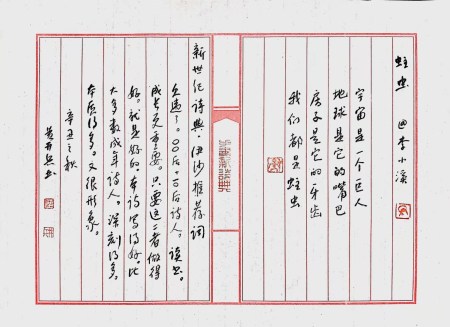 蛀虫 李小溪
宇宙是一个巨人
地球是它的嘴巴
房子是它的牙齿
我们都是蛀虫
新世纪诗典·伊沙推荐词
久违了。00后10后诗人。读书。
成长更重要。只要这二者做得
好。就是好的。本诗写得好。比
大多数成年诗人。深刻得多。
本质得多。又很形象。
辛丑之秋
黄开兵书